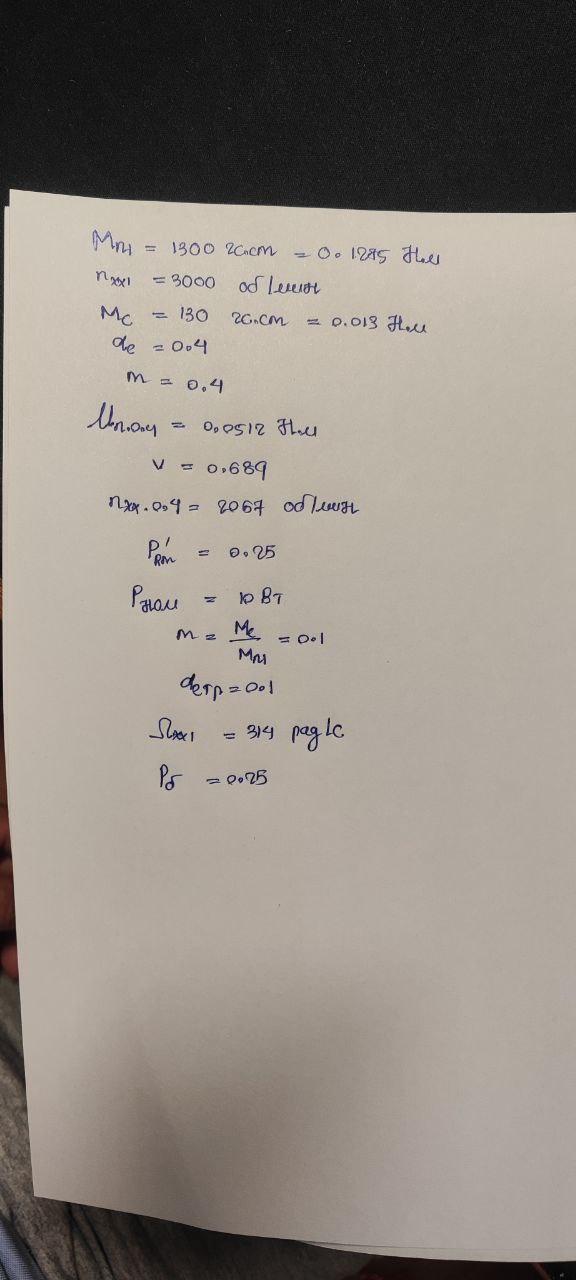 Mп1 = 1300 гс.cm = 0.1275 Н.м
nxx1 = 3000 об/мин
Mc = 130 гс.cm = 0.013 Н.м
αe = 0.4
m = 0.4
Mп.0.4 = 0.0512 Н.м
v = 0.689
nxx.0.4 = 2067 об/мин
P'Rm = 0.25
Pном = 10 Вт
m = Mc/Mп1 = 0.1
αeтр = 0.1
Ωxx1 = 314 рад/с
Pб = 0.25